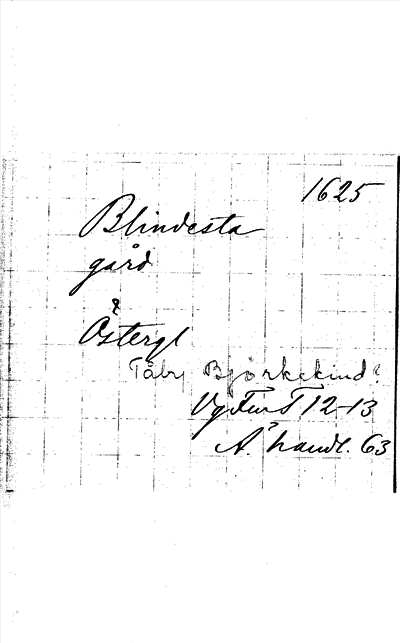 1625
Blindesta
gård
Östergl
Tåby Björkekind?
12-13
handl. 63